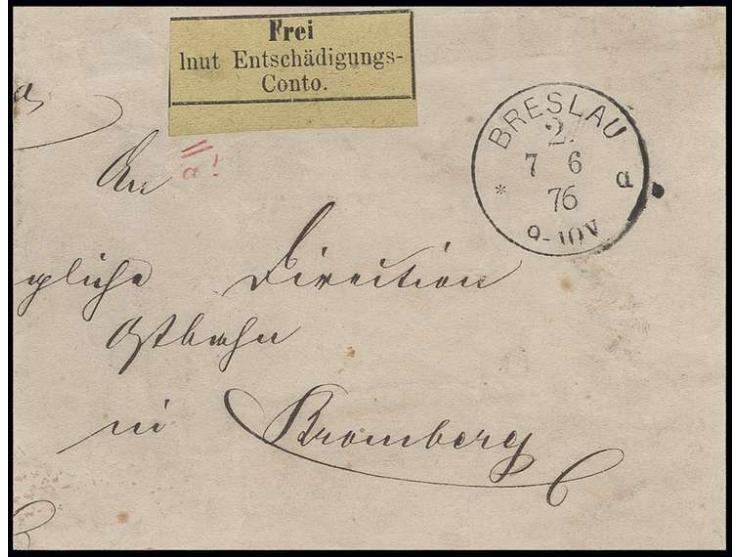 Frei
lnut Entschädigungs-
Conto.
BRESLAU
2.
7 6
76
* a
9-10V
a!
An
gliche Direction
Ostbahn
in Bromberg